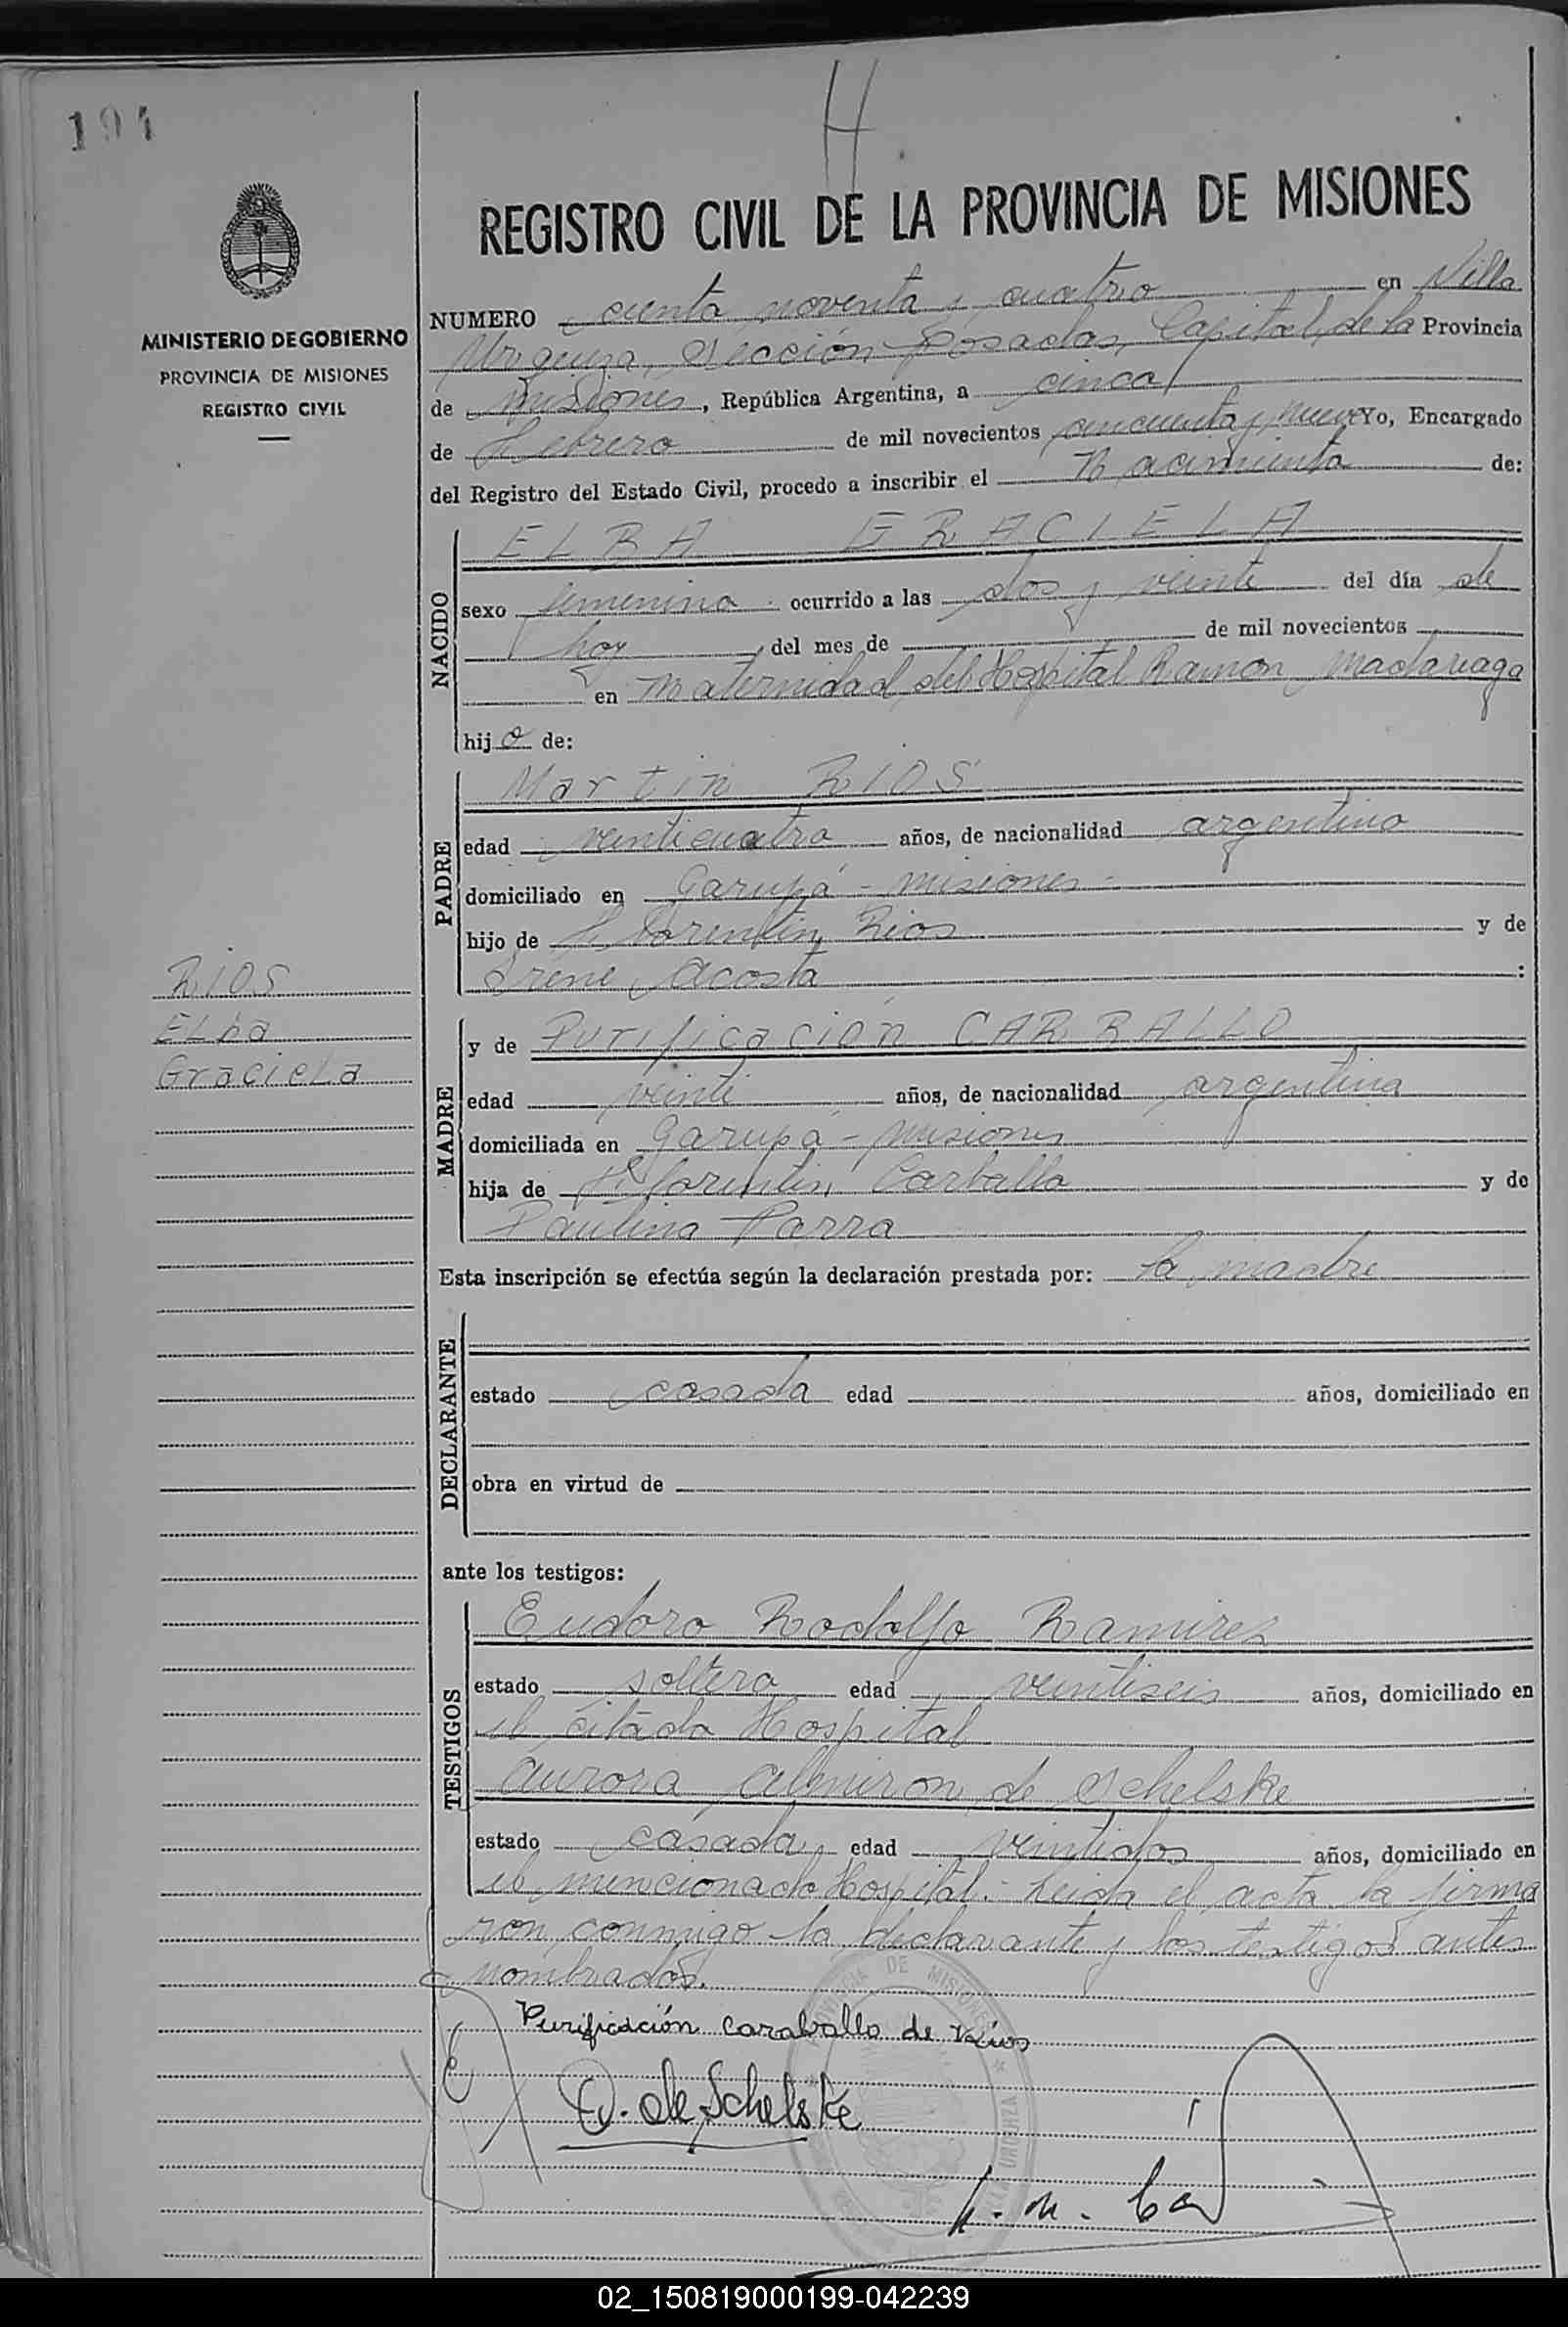 194
H
REGISTRO CIVIL DE LA PROVINCIA DE MISIONES
MINISTERIO DE GOBIERNO
PROVINCIA DE MISIONES
REGISTRO CIVIL
NUMERO ciento noventa y cuatro en Villa
Urquiza, Sección Posadas, Capital de la Provincia
de Misiones, República Argentina, a cinco
de Febrero de mil novecientos cincuenta y nueve Yo, Encargado
del Registro del Estado Civil, procedo a inscribir el Nacimiento de:
NACIDO
ELBA GRACIELA
sexo femenino ocurrido a las dos y veinte del día de
hoy del mes de de mil novecientos
en Maternidad del Hospital Ramon Madariaga
hijo de:
PADRE
Martin RIOS
edad veinticuatro años, de nacionalidad argentino
domiciliado en Garupá - Misiones -
hijo de Florentin Rios y de
Irene Acosta :
RIOS
ELba
GracieLa
MADRE
y de Purificación CARBALLO
edad veinte años, de nacionalidad argentina
domiciliada en Garupá - Misiones
hija de Florentin Carballo y de
Paulina Parra
Esta inscripción se efectúa según la declaración prestada por: la madre
DECLARANTE
estado casada edad años, domiciliado en
obra en virtud de
ante los testigos:
TESTIGOS
Eudoro Rodolfo Ramirez
estado soltero edad veintiseis años, domiciliado en
el citado Hospital
Aurora Almiron de Schelske
estado casada edad veintidos años, domiciliado en
el mencionado Hospital.- Leida el acta la firma
ron conmigo la declarante y los testigos antes
nombrados.
Purificación Caraballo de Rios
de Schelske
PROVINCIA DE MISIONES
02_150819000199-042239